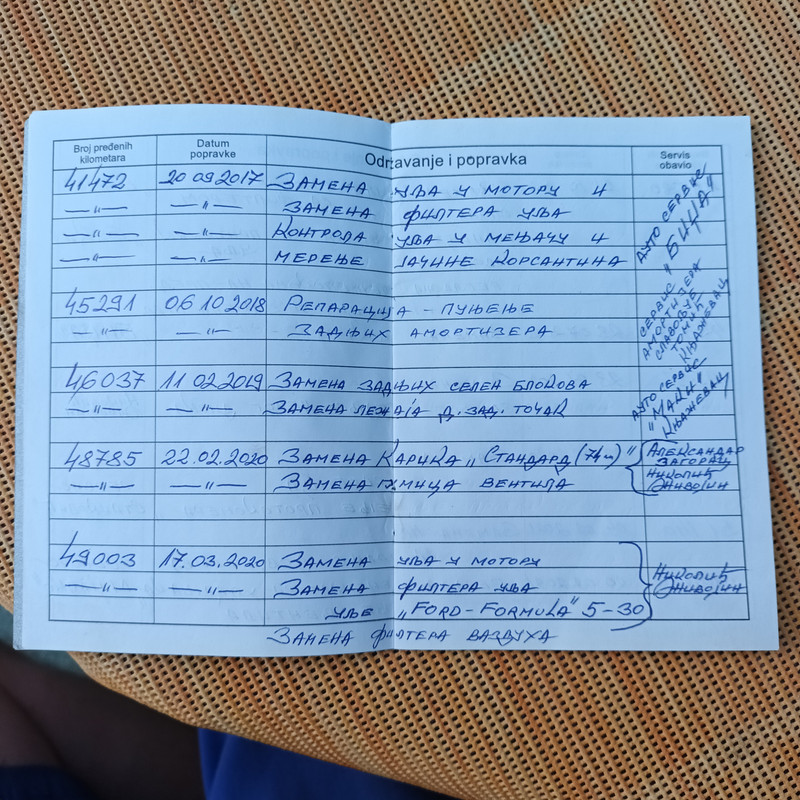 Broj pređenih kilometara
Datum popravke
Održavanje i popravka
Servis obavio
41472 20 09 2017 ЗАМЕНА УЉА У МОТОРУ И
—"— —"— ЗАМЕНА ФИЛТЕРА УЉА
—"— —"— КОНТРОЛА УЉА У МЕЊАЧУ И
—"— —"— МЕРЕЊЕ ЈАЧИНЕ КОРСАНТИНА
АУТО СЕРВИС
"БИЦА"
45291 06 10 2018 РЕПАРАЦИЈА - ПУЊЕЊЕ
—"— —"— ЗАДЊИХ АМОРТИЗЕРА
СЕРВИС
АМОРТИЗЕРА
ТОМИЋ
КЊАЖЕВАЦ
46037 11 02 2019 ЗАМЕНА ЗАДЊИХ СЕЛЕН БЛОКОВА
—"— —"— ЗАМЕНА ЛЕЖАЈА Д. ЗАД. ТОЧАК
АУТО СЕРВИС
"МАКИ"
КЊАЖЕВАЦ
48785 22.02.2020 ЗАМЕНА КАРИКА „СТАНДАРД (74м)"
—"— —"— ЗАМЕНА ГУМИЦА ВЕНТИЛА
АЛЕКСАНДАР
ЗАГОРАЦ
НИКОЛИЋ
ЖИВОЈИН
49003 17.03.2020 ЗАМЕНА УЉА У МОТОРУ
—"— —"— ЗАМЕНА ФИЛТЕРА УЉА
УЉЕ „FORD-FORMULA" 5-30
НИКОЛИЋ
ЖИВОЈИН
ЗАМЕНА ФИЛТЕРА ВАЗДУХА